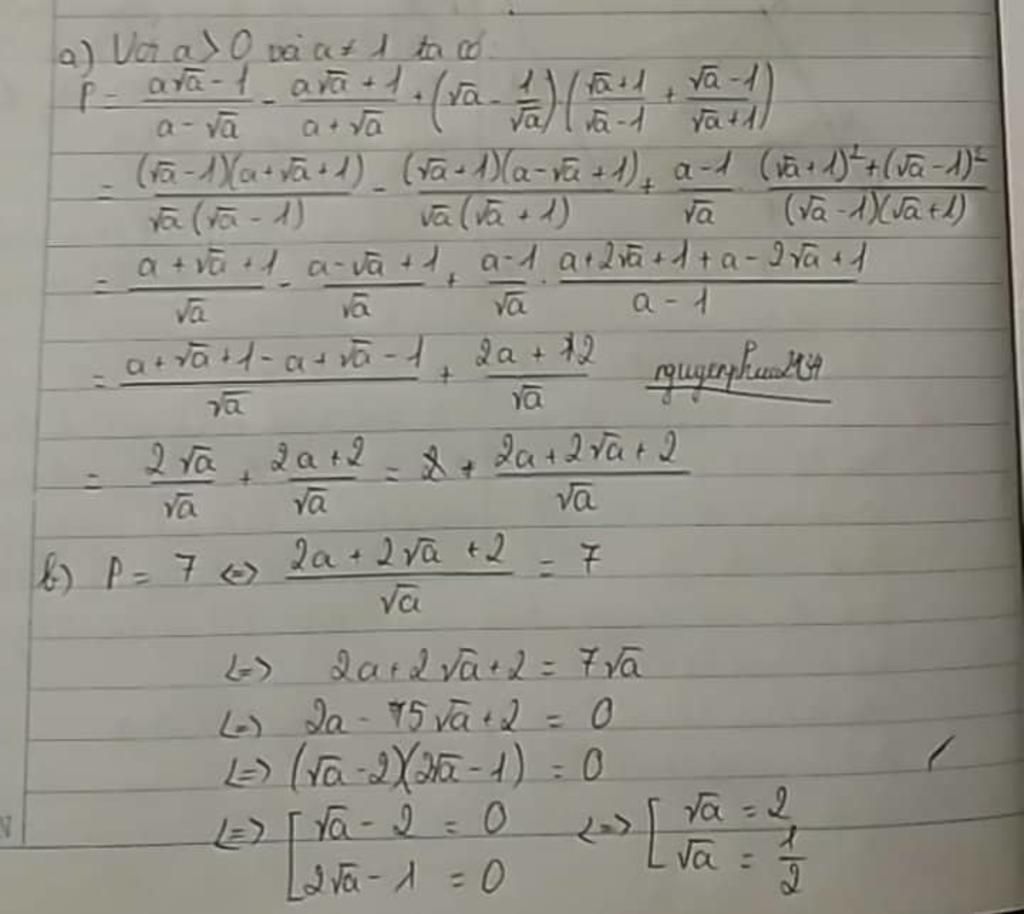 a) Với a > 0 và a ≠ 1 ta có
P = (a√a - 1)/(a - √a) - (a√a + 1)/(a + √a) + (√a - 1/√a)((√a + 1)/(√a - 1) + (√a - 1)/(√a + 1))
= ((√a - 1)(a + √a + 1))/(√a(√a - 1)) - ((√a + 1)(a - √a + 1))/(√a(√a + 1)) + (a - 1)/√a ((√a + 1)² + (√a - 1)²)/((√a - 1)(√a + 1))
= (a + √a + 1)/√a - (a - √a + 1)/√a + (a - 1)/√a . (a + 2√a + 1 + a - 2√a + 1)/(a - 1)
= (a + √a + 1 - a + √a - 1)/√a + (2a + 2)/√a
= 2√a/√a + (2a + 2)/√a = (2a + 2√a + 2)/√a
b) P = 7 <=> (2a + 2√a + 2)/√a = 7
<=> 2a + 2√a + 2 = 7√a
<=> 2a - 5√a + 2 = 0
<=> (√a - 2)(2√a - 1) = 0
<=> [ √a - 2 = 0 <=> [ √a = 2
2√a - 1 = 0 √a = 1/2